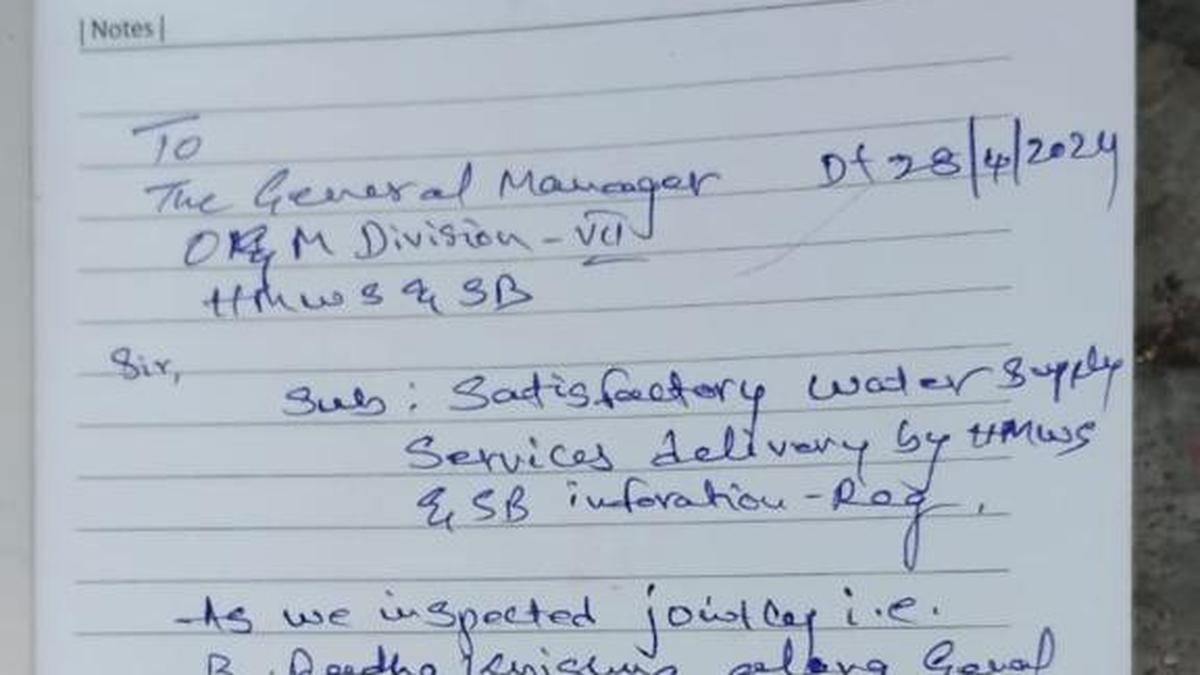 | Notes |
To
The General Manager Dt 28/4/2024
O & M Division - VII
HMWS & SB
Sir,
Sub: Satisfactory water supply
Services delivery by HMWS
& SB inforation - Reg.
As we inspected jointley i.e.
B. Radha Krishna along